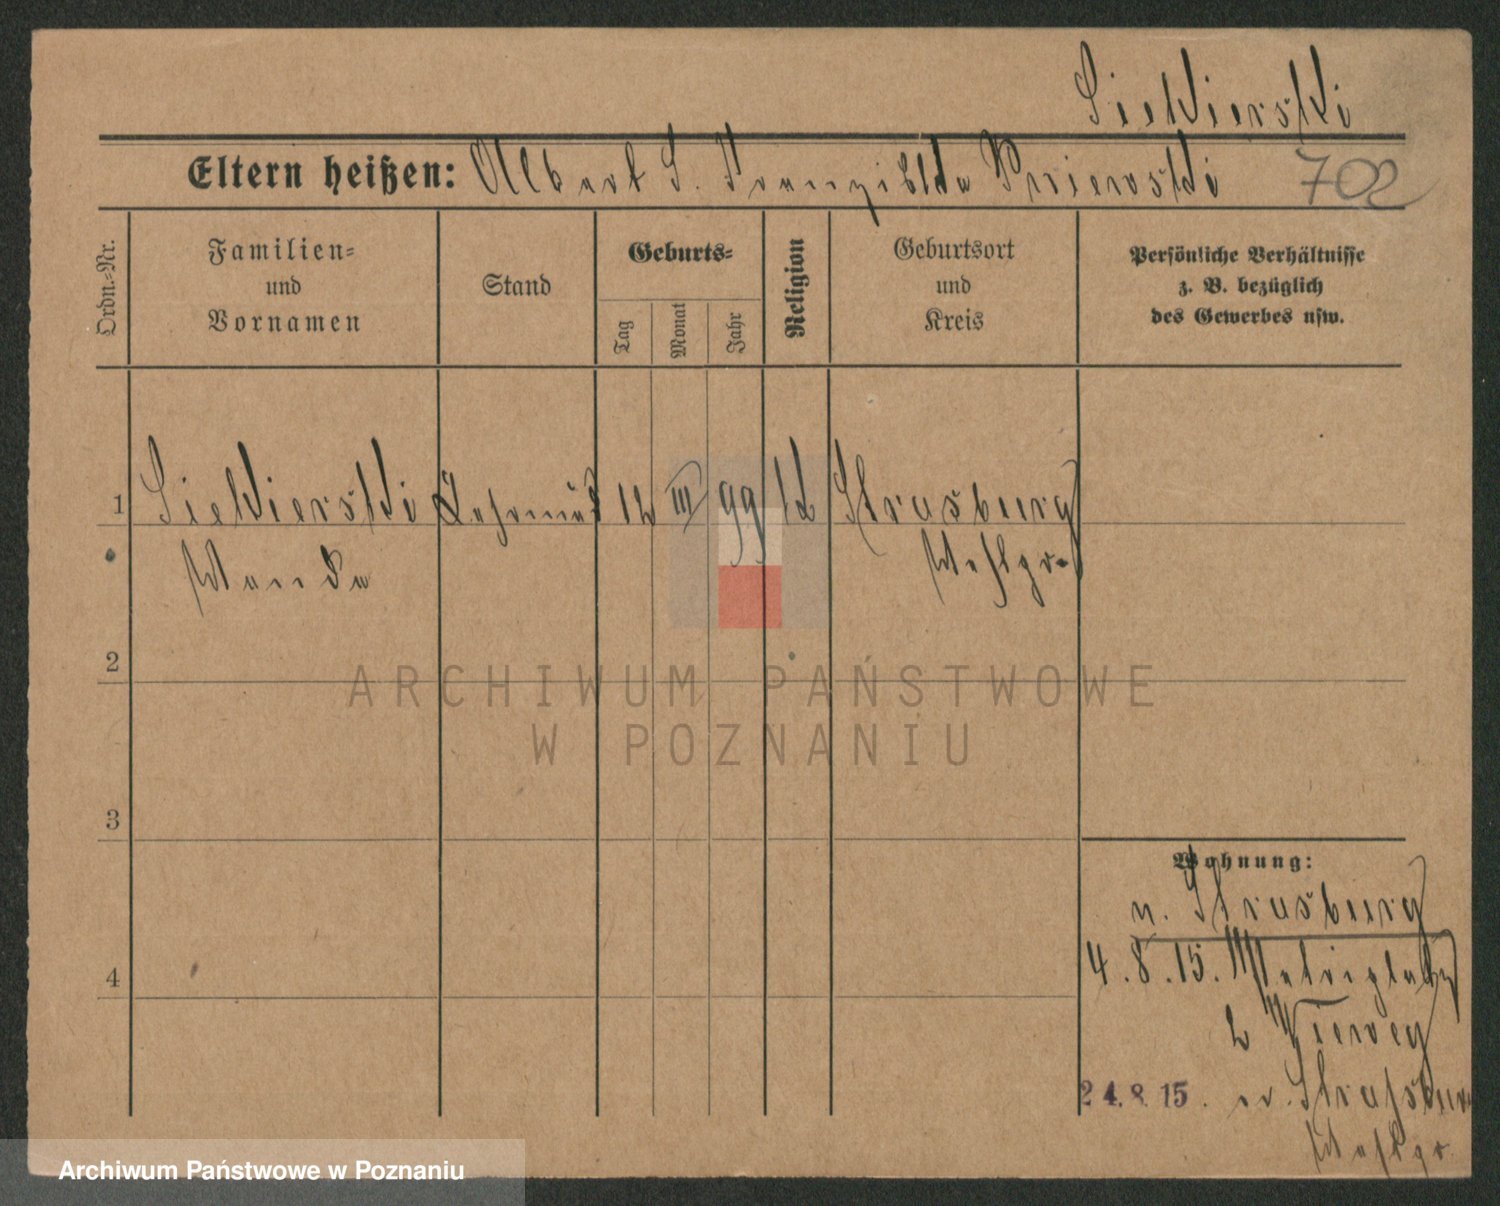 Siekierski
Eltern heißen: Albert S. Franziska Pruierski
702
Ordn.-Nr.
Familien-
und
Vornamen
Stand
Geburts-
Tag
Monat
Jahr
Religion
Geburtsort
und
Kreis
Persönliche Verhältnisse
z. B. bezüglich
des Gewerbes usw.
1
Siekierski
12 III 99 k
Strasburg
Wanda
Westpr.
2
ARCHIWUM PAŃSTWOWE
W POZNANIU
3
4
Wohnung:
v. Strasburg
4.8.15.
b
24.8.15. n. Strasburg
Westpr.
Archiwum Państwowe w Poznaniu